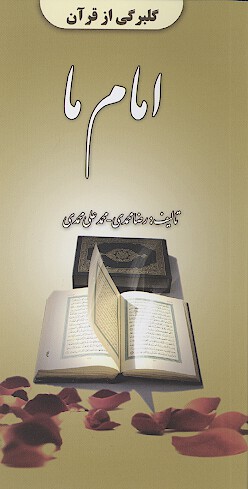 گلبرگی از قرآن
امام ما
تالیف: رضا محمدی - محمد علی محمدی